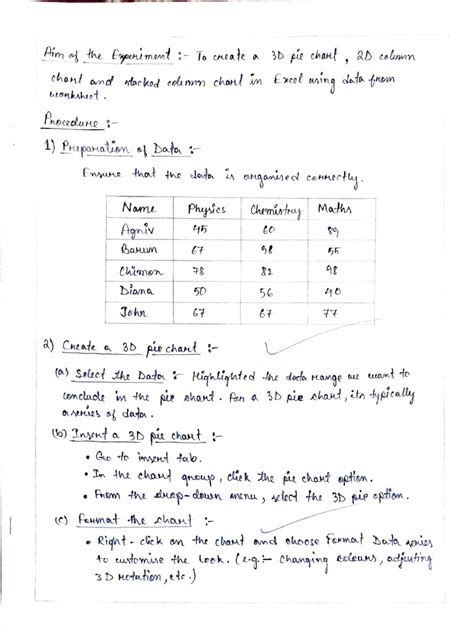 Aim of the Experiment :- To create a 3D pie chart, 2D column
chart and stacked column chart in Excel using data from
worksheet.
Procedure :-
1) Preparation of Data :-
Ensure that the data is organised correctly.
Name Physics Chemistry Maths
Agniv 45 60 89
Barun 67 98 55
Chimon 78 82 98
Diana 50 56 40
John 67 67 77
2) Create a 3D pie chart :-
(a) Select the Data :- Highlighted the data range we want to
conclude in the pie chart. For a 3D pie chart, its typically
a series of data.
(b) Insert a 3D pie chart :-
• Go to insert tab.
• In the chart group, click the pie chart option.
• From the drop-down menu, select the 3D pie option.
(c) Format the chart :-
• Right-click on the chart and choose Format Data series
to customise the look. (e.g:- changing colours, adjusting
3D rotation, etc.)